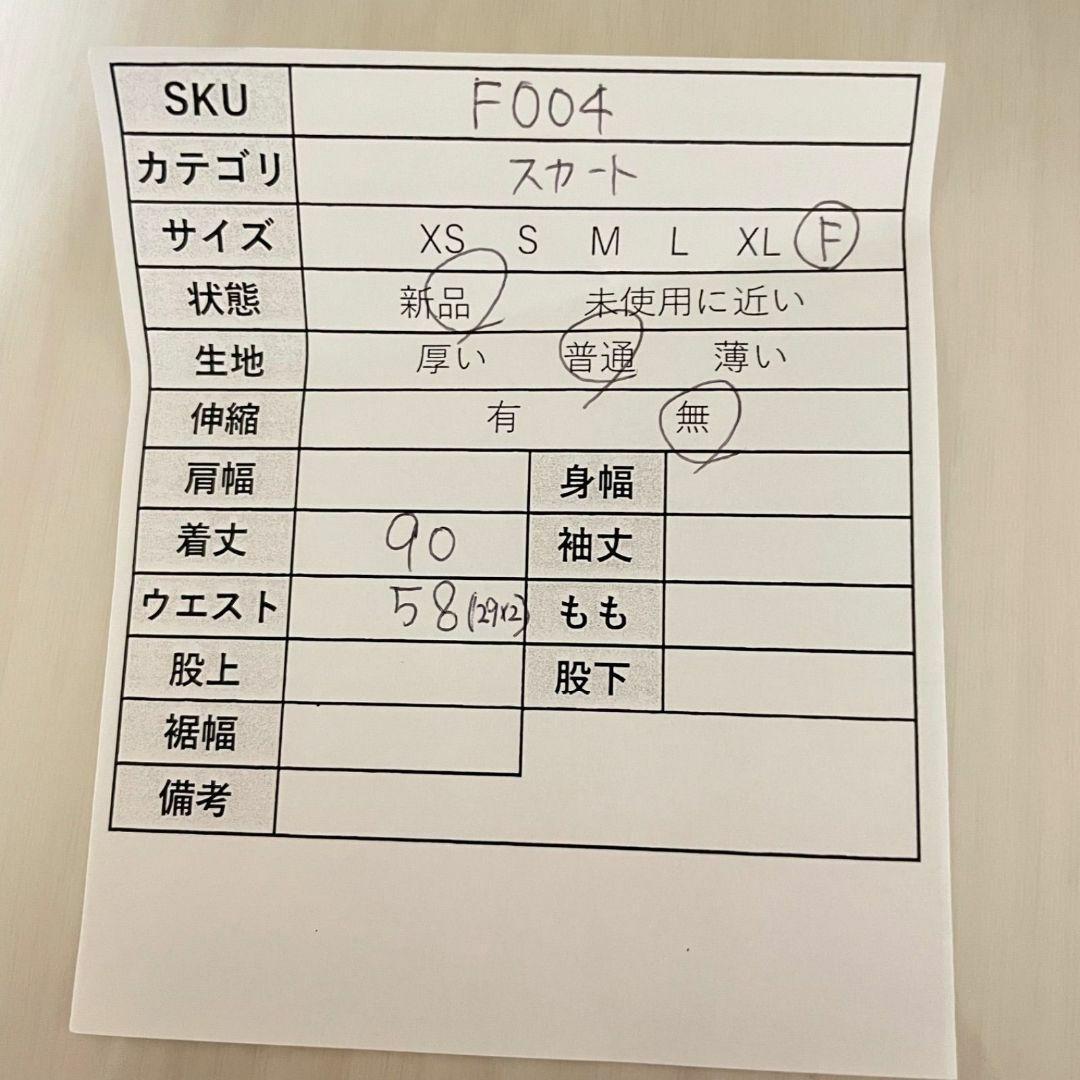 SKU F004
カテゴリ スカート
サイズ XS S M L XL F
状態 新品 未使用に近い
生地 厚い 普通 薄い
伸縮 有 無
肩幅 身幅
着丈 90 袖丈
ウエスト 58(29×2) もも
股上 股下
裾幅
備考